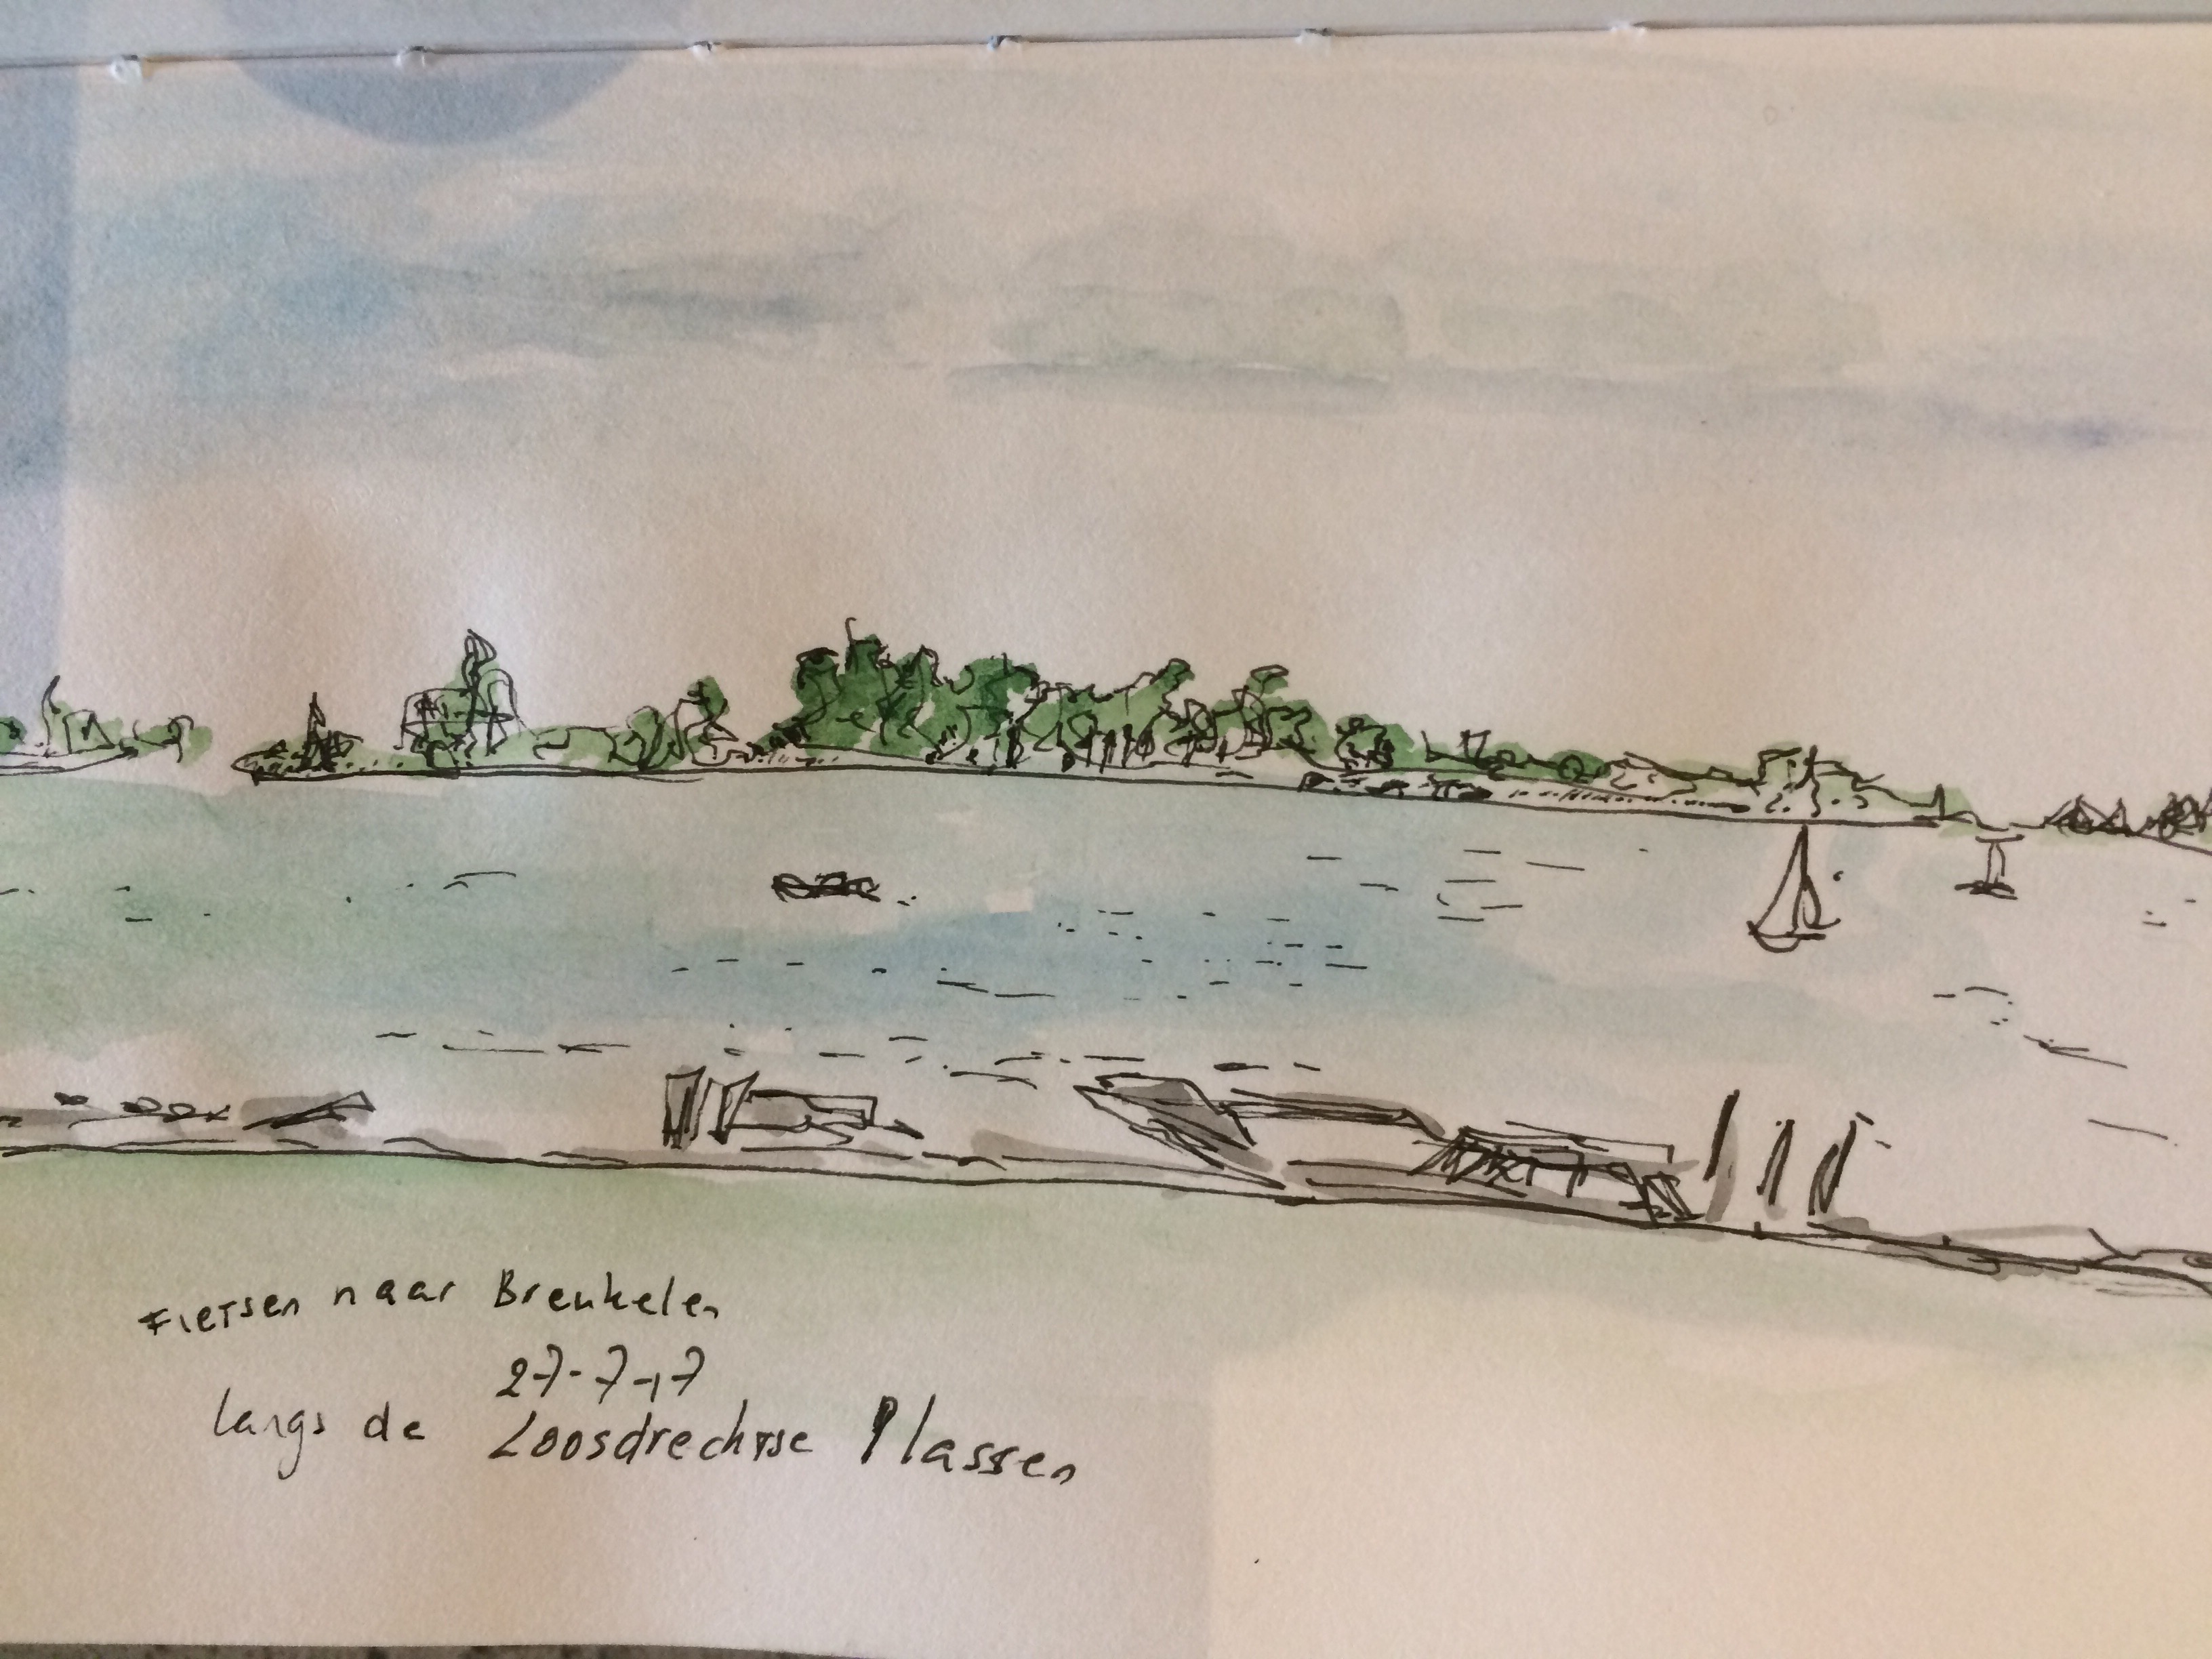 Fietsen naar Breukelen
27-7-17
langs de Loosdrechtse Plassen